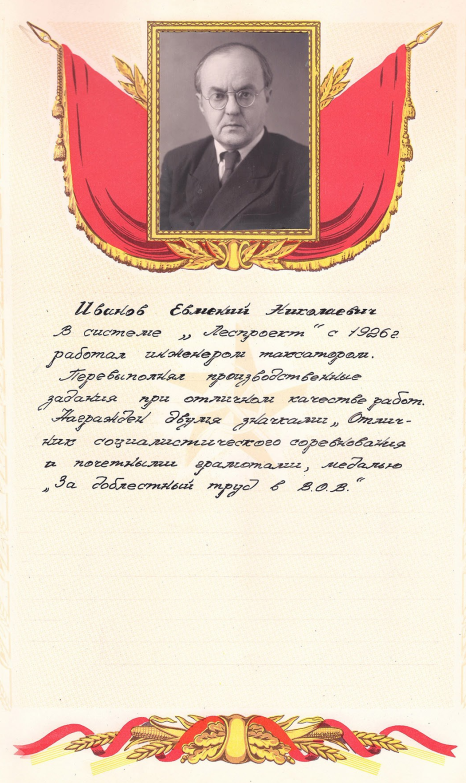 Иванов Евмений Николаевич
В системе „Леспроект“ с 1926г.
работал инженером таксатором.
Перевыполнял производственные
задания при отличном качестве работ.
Награжден двумя значками „Отлич-
ник социалистического соревнования
и почетными грамотами, медалью
„За доблестный труд в В.О.В.“